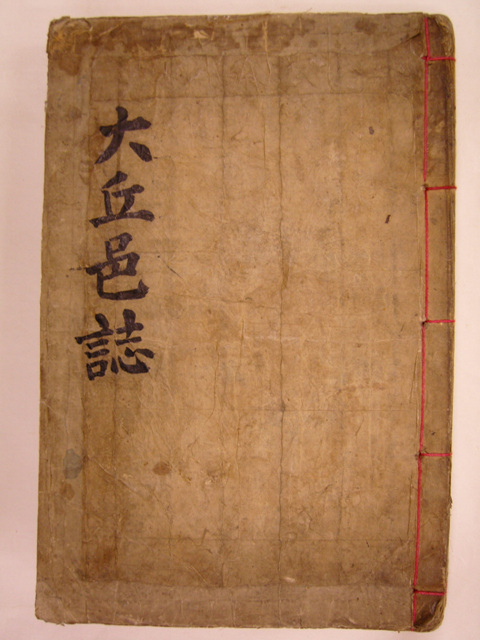 大丘邑誌